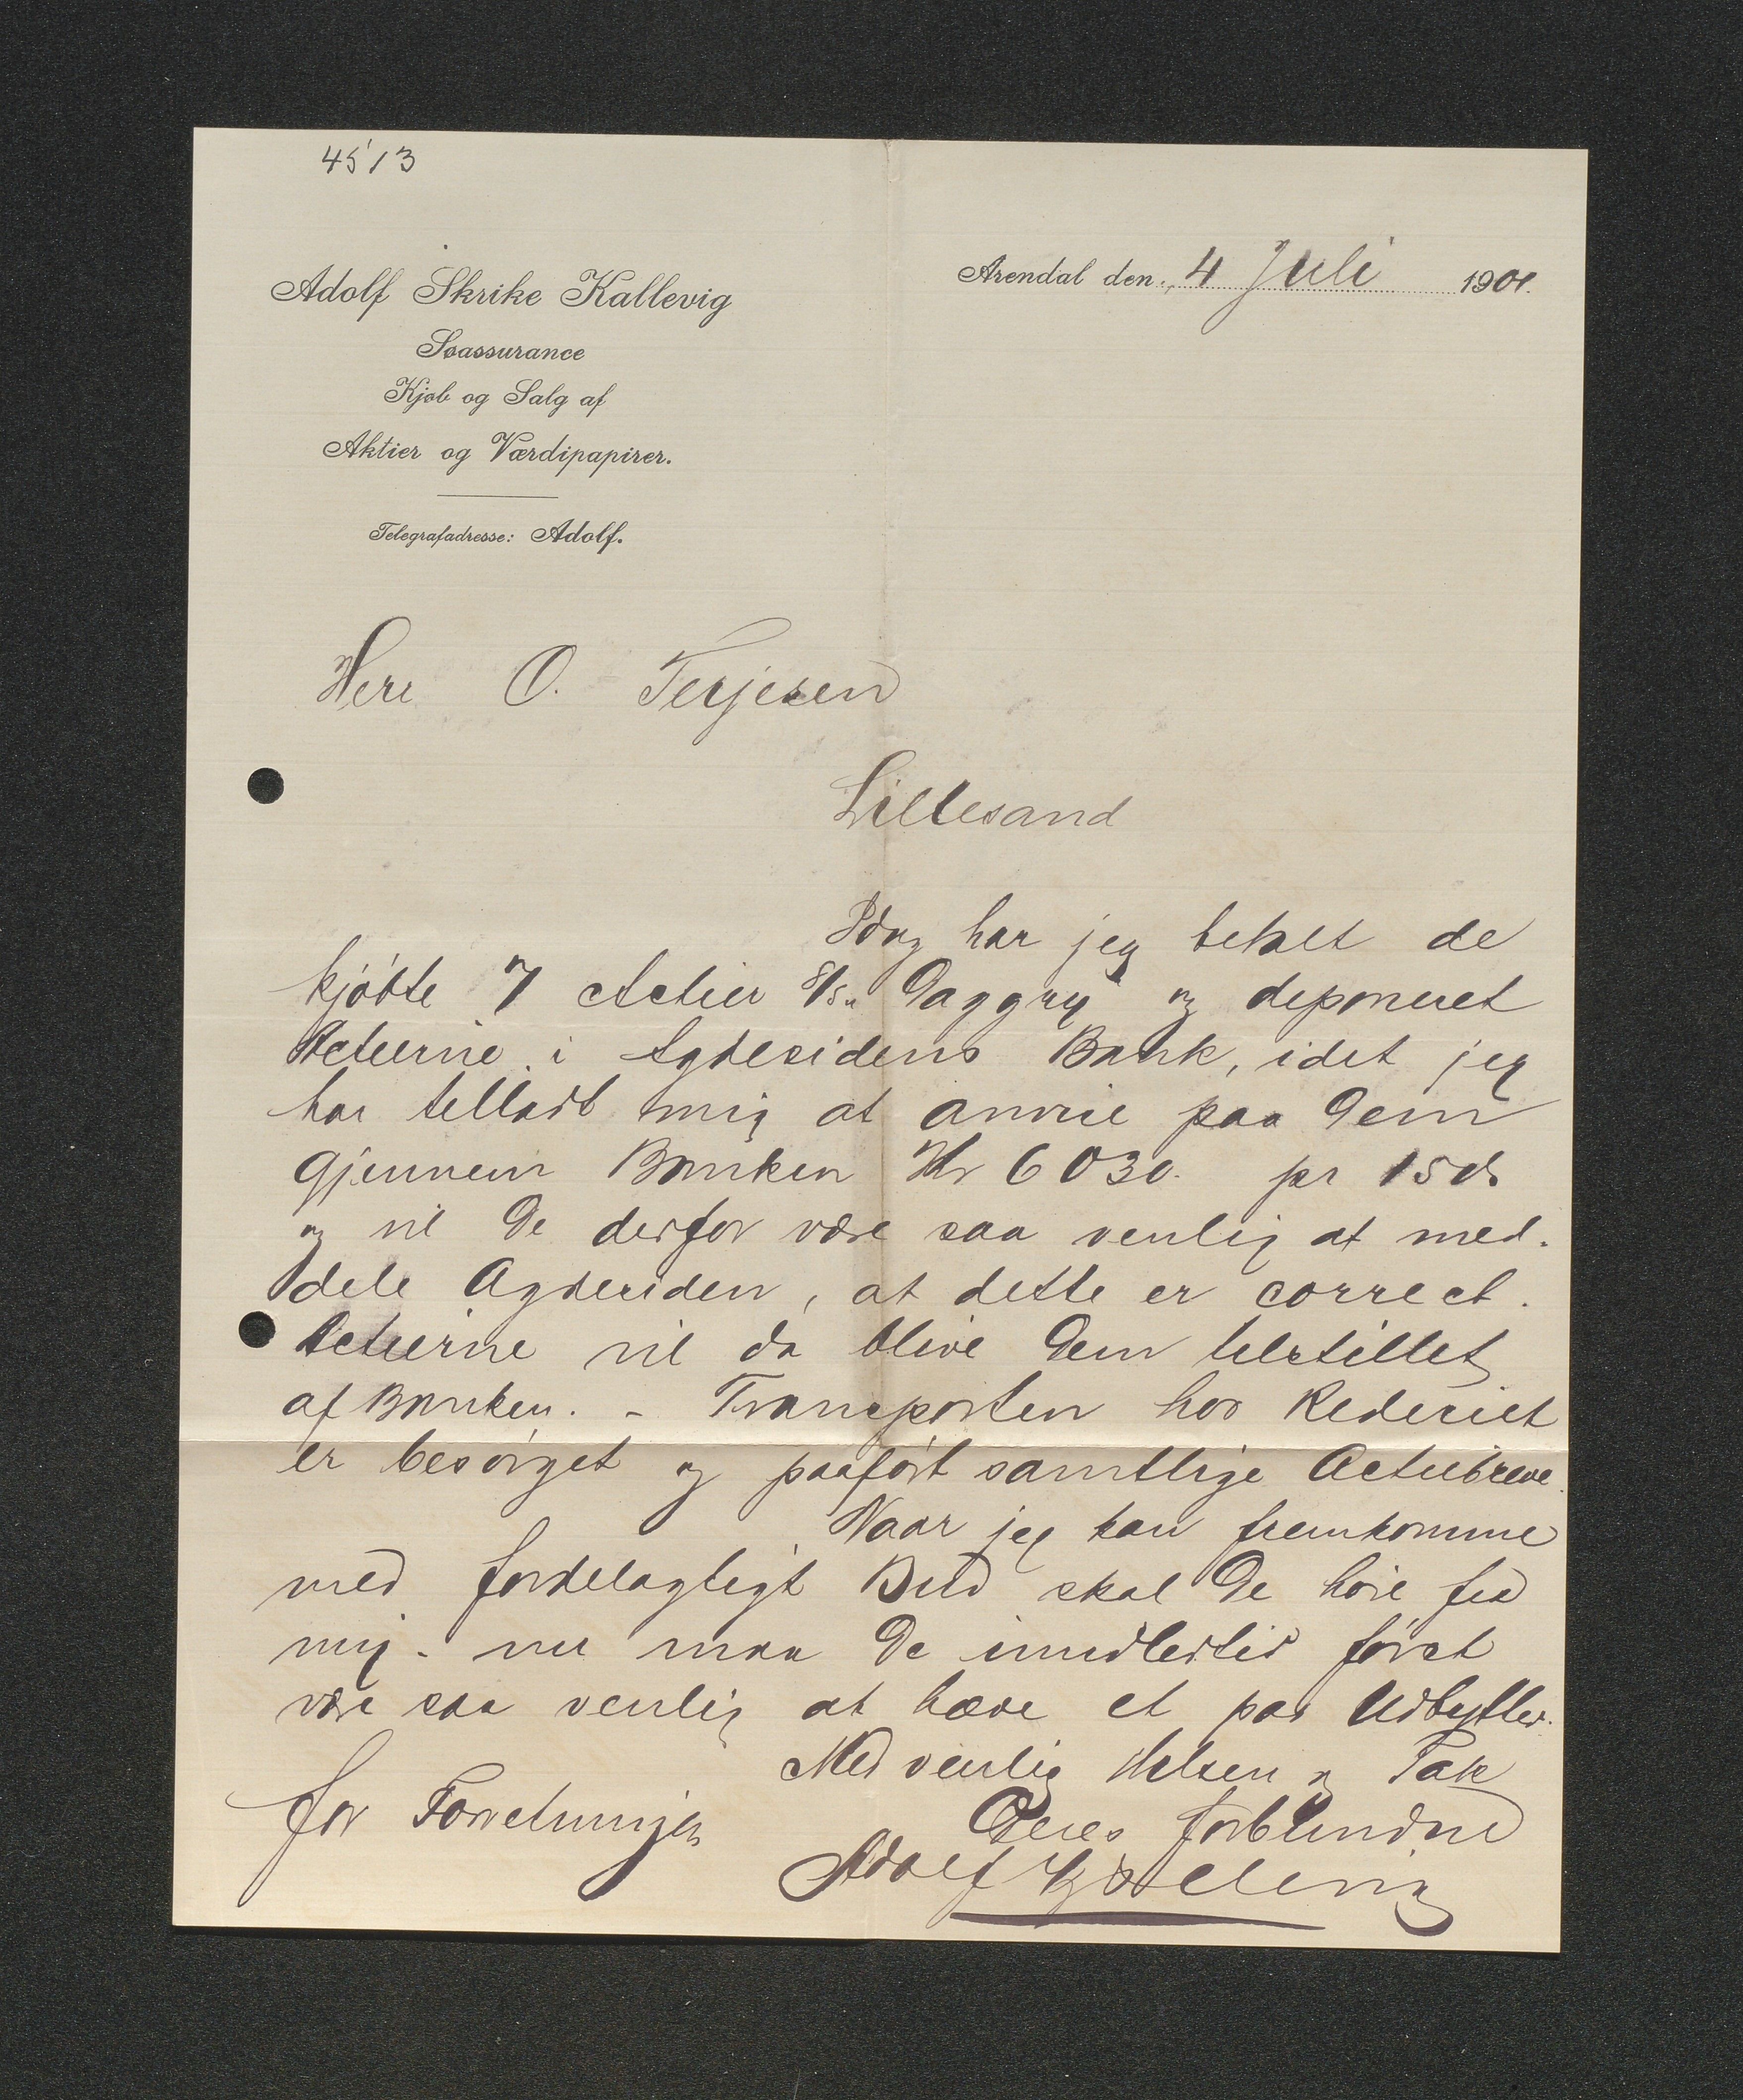 4513
Adolf Skrike Kallevig
Søassurance
Kjøb og Salg af
Aktier og Værdipapirer.
Telegrafadresse: Adolf.
Arendal den 4 Juli 1901.
Herr O. Terjesen
Lillesand
Idag har jeg betalt de
kjøbte 7 Actier S/S „Daggry" og deponeret
Actierne i Agdesidens Bank, idet jeg
har tilladt mig at anvise paa Dem
gjennem Banken Kr 6030. pr 15 ds
og vil De derfor være saa venlig at med-
dele Agdesiden, at dette er correct.
Actierne vil da blive Dem tilstillet
af Banken. - Transporten hos Rederiet
er besørget og paaført samtlige Actiebreve.
Naar jeg kan fremkomme
med fordelagtigt Bud skal De høre fra
mig - nu maa De imidlertid først
være saa venlig at hæve et par Udbytter.
Med venlig Hilsen og Tak
for Forretningen
Deres forbundne
Adolf Kallevig